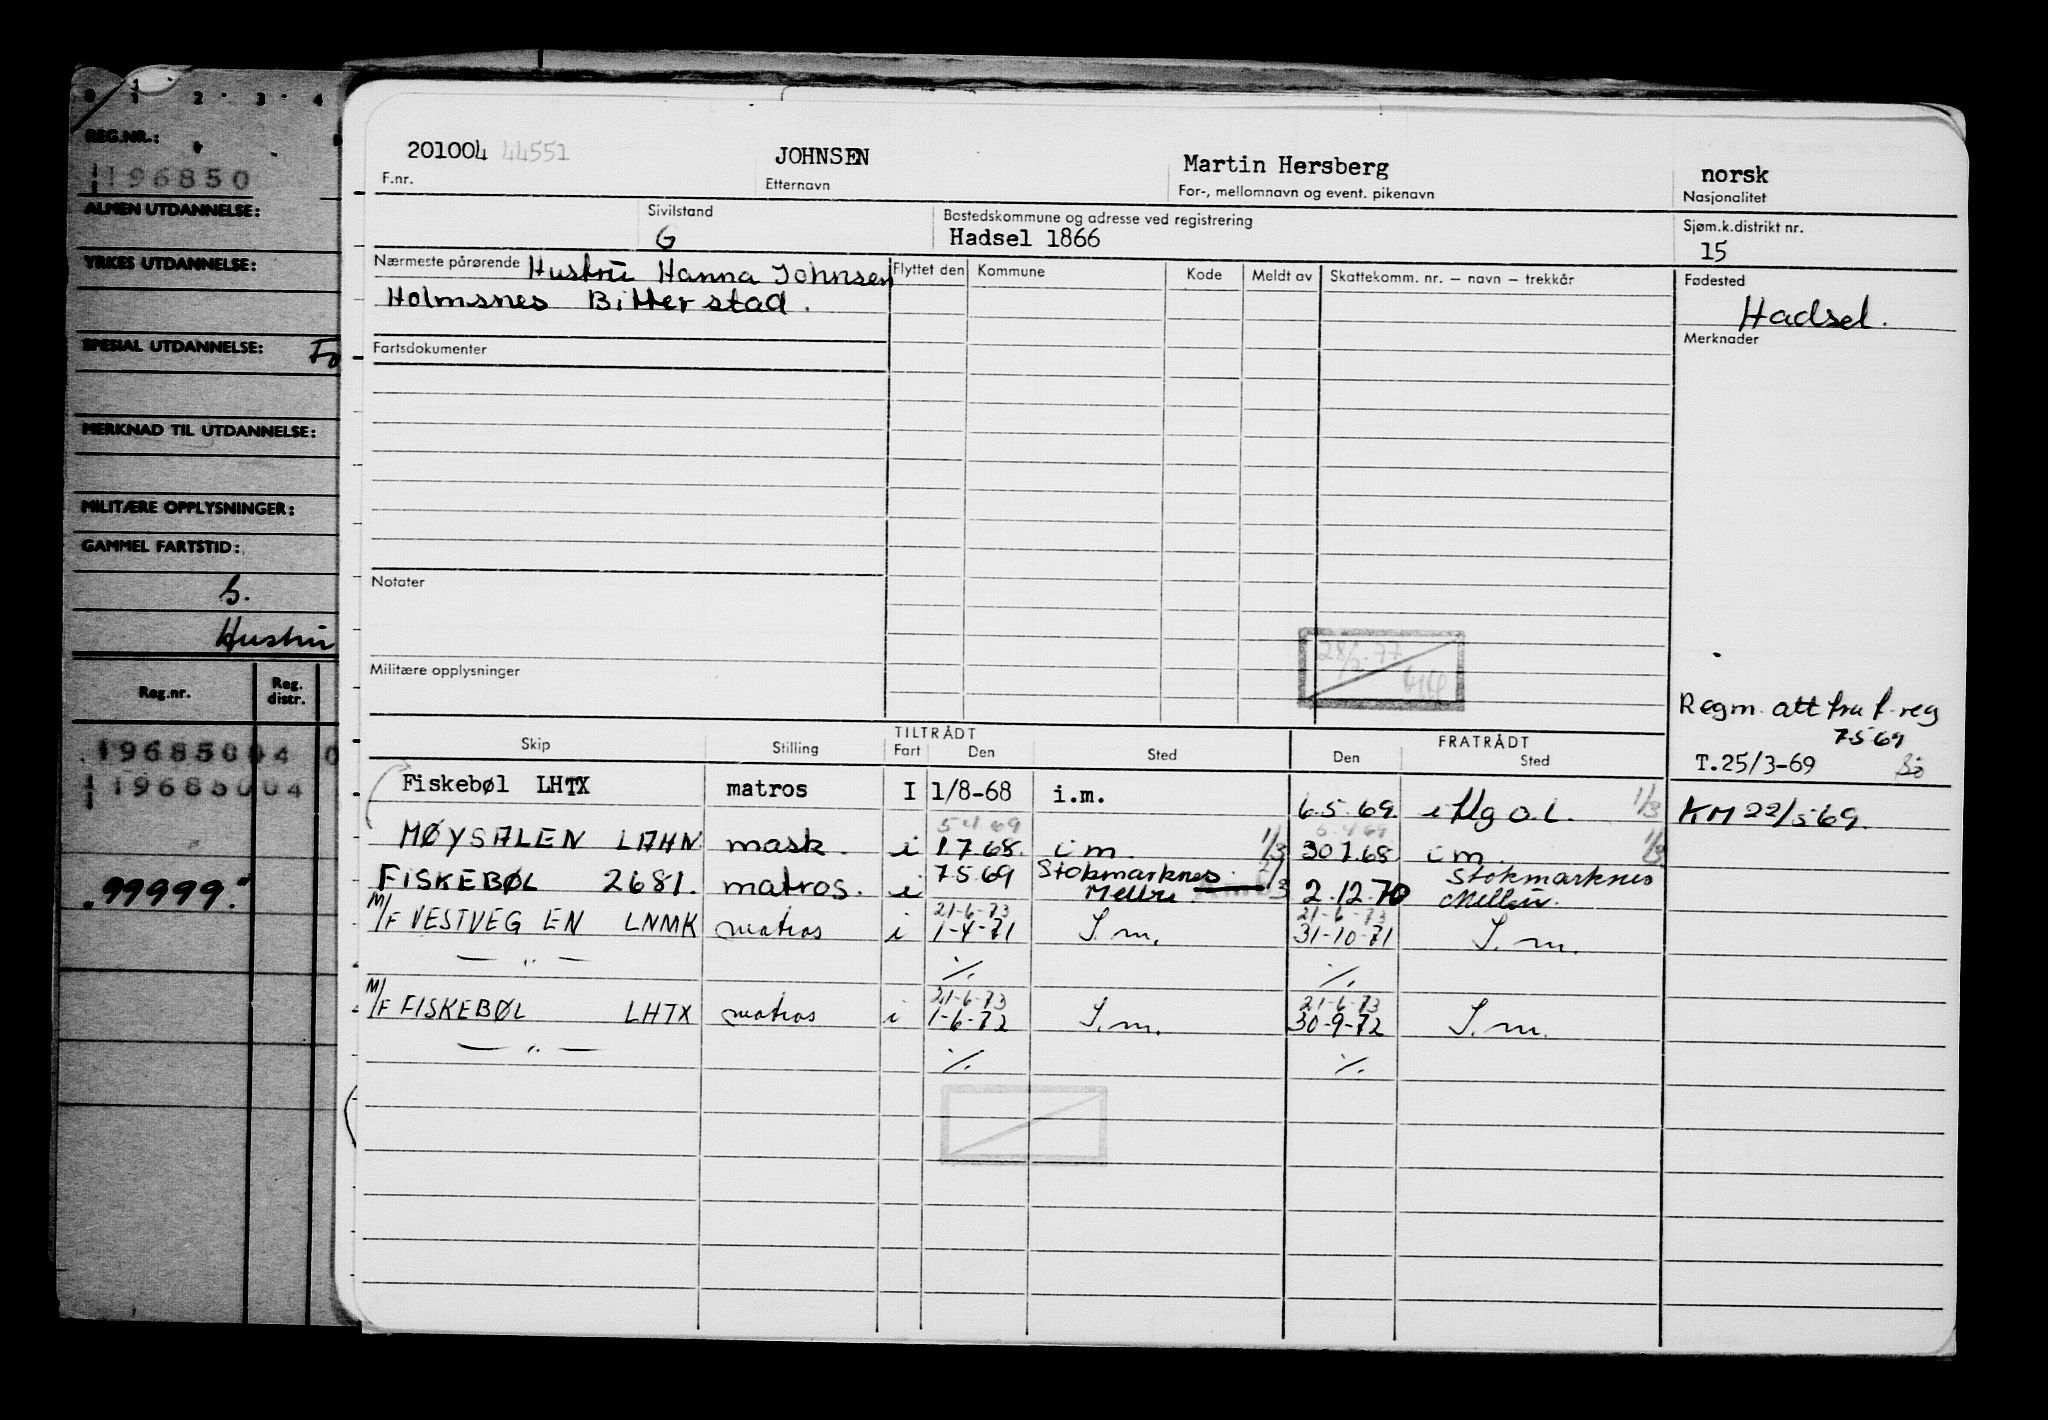 0 1 2 3 4
REG.NR.:
196850
ALMEN UTDANNELSE:
YRKES UTDANNELSE:
SPESIAL UTDANNELSE: Fo
MERKNAD TIL UTDANNELSE:
MILITÆRE OPPLYSNINGER:
GAMMEL FARTSTID:
Hustru
Reg.nr. Reg. distr.
19685004 0
19685004
.99999."
201004 44551 JOHNSEN Martin Hersberg norsk
F.nr. Etternavn For-, mellomnavn og event. pikenavn Nasjonalitet
Sivilstand Bostedskommune og adresse ved registrering Sjøm.k.distrikt nr.
G Hadsel 1866 15
Nærmeste pårørende Hustru Hanna Johnsen Flyttet den Kommune Kode Meldt av Skattekomm. nr. – navn – trekkår Fødested
Holmsnes Bitterstad. Hadsel.
Fartsdokumenter Merknader
Notater
28/2-77
Militære opplysninger
Regm. att fra f. reg
7569
T.25/3-69
TILTRÅDT FRATRÅDT
Skip Stilling Fart Den Sted Den Sted
Fiskebøl LHTX matros I 1/8-68 i.m. 6.5.69. 1/3 KM 22/5 69.
5 4 69
MØYSALEN LAHN mask. i 1 7.68. i m. 1/3 30 7.68. i m. 1/3
FISKEBØL 2681. matros. i 7569 Stokmarknes 2/3 2.12.70 Stokmarknes
Melbu Melbu.
21-6-73 21-6-73
M/F VESTVEGEN LNMK matros i 1-4-71 S.m. 31-10-71 S.m.
— " — ./. ./.
21-6-73 21-6-73
M/F FISKEBØL LHTX matros i 1-6-72 S.m. 30-9-72 S.m.
— " — ./. ./.